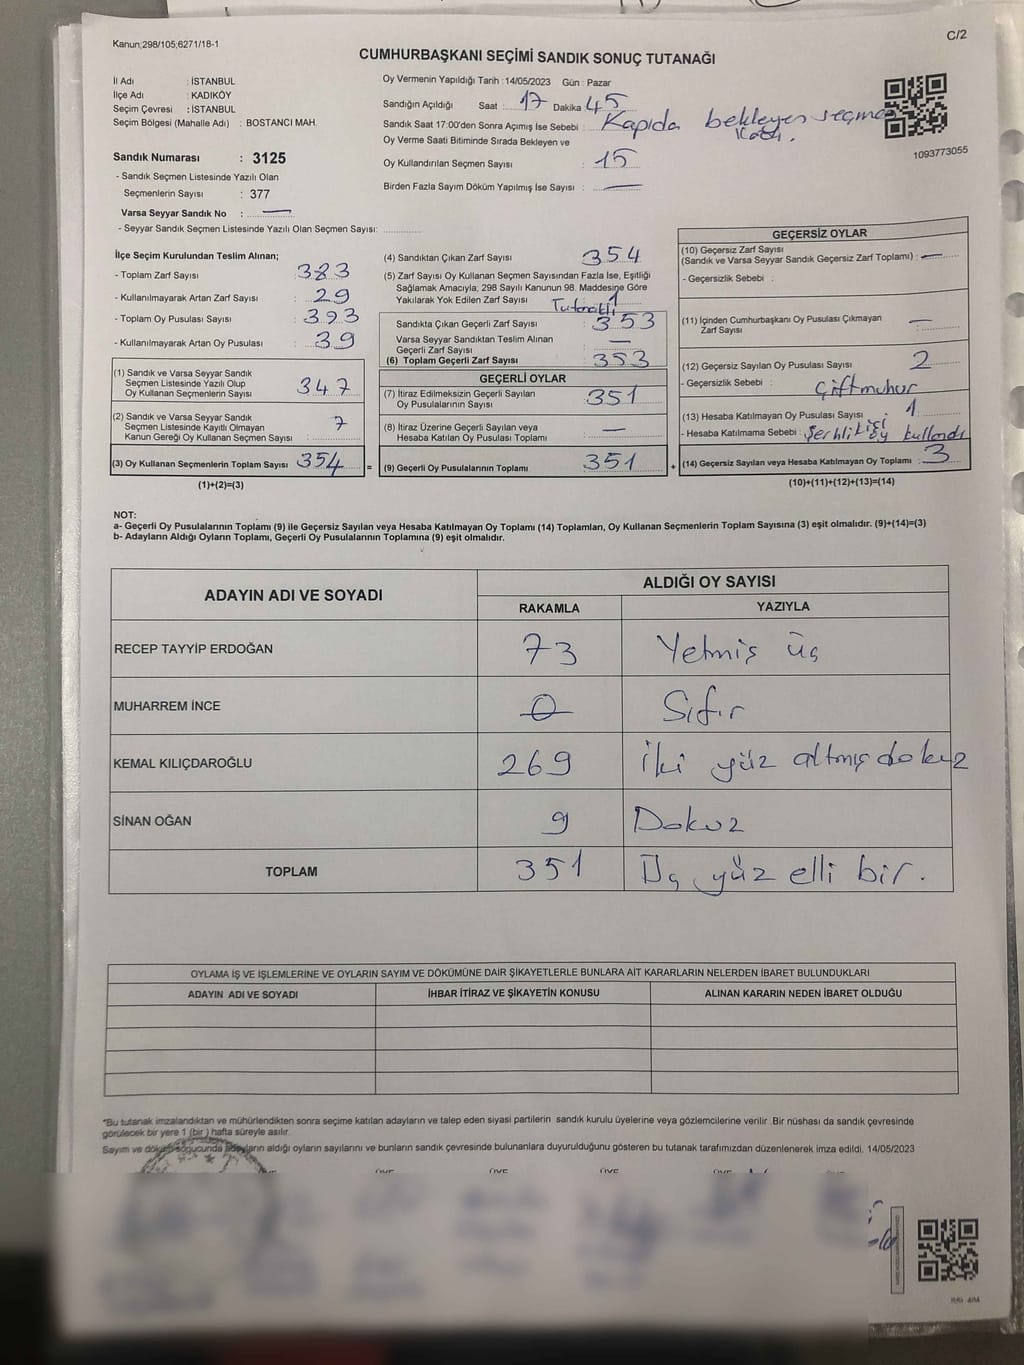 Kanun;298/105;6271/18-1
C/2
CUMHURBAŞKANI SEÇİMİ SANDIK SONUÇ TUTANAĞI
İl Adı : İSTANBUL
İlçe Adı : KADIKÖY
Seçim Çevresi : İSTANBUL
Seçim Bölgesi (Mahalle Adı) : BOSTANCI MAH.
Sandık Numarası : 3125
- Sandık Seçmen Listesinde Yazılı Olan
Seçmenlerin Sayısı : 377
Varsa Seyyar Sandık No : —
- Seyyar Sandık Seçmen Listesinde Yazılı Olan Seçmen Sayısı:
Oy Vermenin Yapıldığı Tarih : 14/05/2023 Gün : Pazar
Sandığın Açıldığı Saat : 17 Dakika 45
Sandık Saat 17:00'den Sonra Açılmış İse Sebebi : Kapıda bekleyen seçmen
Oy Verme Saati Bitiminde Sırada Bekleyen ve
Oy Kullandırılan Seçmen Sayısı : 15
Birden Fazla Sayım Döküm Yapılmış İse Sayısı : —
1093773055
İlçe Seçim Kurulundan Teslim Alınan;
- Toplam Zarf Sayısı : 383
- Kullanılmayarak Artan Zarf Sayısı : 29
- Toplam Oy Pusulası Sayısı : 393
- Kullanılmayarak Artan Oy Pusulası : 39
(1) Sandık ve Varsa Seyyar Sandık
Seçmen Listesinde Yazılı Olup
Oy Kullanan Seçmenlerin Sayısı : 347
(2) Sandık ve Varsa Seyyar Sandık
Seçmen Listesinde Kayıtlı Olmayan
Kanun Gereği Oy Kullanan Seçmen Sayısı : 7
(3) Oy Kullanan Seçmenlerin Toplam Sayısı : 354
(1)+(2)=(3)
(4) Sandıktan Çıkan Zarf Sayısı : 354
(5) Zarf Sayısı Oy Kullanan Seçmen Sayısından Fazla İse, Eşitliği
Sağlamak Amacıyla; 298 Sayılı Kanunun 98. Maddesine Göre
Yakılarak Yok Edilen Zarf Sayısı : 1
Sandıkta Çıkan Geçerli Zarf Sayısı : 353
Varsa Seyyar Sandıktan Teslim Alınan
Geçerli Zarf Sayısı : —
(6) Toplam Geçerli Zarf Sayısı : 353
GEÇERLİ OYLAR
(7) İtiraz Edilmeksizin Geçerli Sayılan
Oy Pusulalarının Sayısı : 351
(8) İtiraz Üzerine Geçerli Sayılan veya
Hesaba Katılan Oy Pusulası Toplamı : —
= (9) Geçerli Oy Pusulalarının Toplamı : 351
GEÇERSİZ OYLAR
(10) Geçersiz Zarf Sayısı
(Sandık ve Varsa Seyyar Sandık Geçersiz Zarf Toplamı) : —
- Geçersizlik Sebebi :
(11) İçinden Cumhurbaşkanı Oy Pusulası Çıkmayan
Zarf Sayısı : —
(12) Geçersiz Sayılan Oy Pusulası Sayısı : 2
- Geçersizlik Sebebi : Çift mühür
(13) Hesaba Katılmayan Oy Pusulası Sayısı : 1
- Hesaba Katılmama Sebebi : Şerhli kişi oy kullandı
+ (14) Geçersiz Sayılan veya Hesaba Katılmayan Oy Toplamı : 3
(10)+(11)+(12)+(13)=(14)
NOT:
a- Geçerli Oy Pusulalarının Toplamı (9) ile Geçersiz Sayılan veya Hesaba Katılmayan Oy Toplamı (14) Toplamları, Oy Kullanan Seçmenlerin Toplam Sayısına (3) eşit olmalıdır. (9)+(14)=(3)
b- Adayların Aldığı Oyların Toplamı, Geçerli Oy Pusulalarının Toplamına (9) eşit olmalıdır.
ADAYIN ADI VE SOYADI
ALDIĞI OY SAYISI
RAKAMLA YAZIYLA
RECEP TAYYİP ERDOĞAN 73 Yetmiş üç
MUHARREM İNCE 0 Sıfır
KEMAL KILIÇDAROĞLU 269 İki yüz altmış dokuz
SİNAN OĞAN 9 Dokuz
TOPLAM 351 Üç yüz elli bir.
OYLAMA İŞ VE İŞLEMLERİNE VE OYLARIN SAYIM VE DÖKÜMÜNE DAİR ŞİKAYETLERLE BUNLARA AİT KARARLARIN NELERDEN İBARET BULUNDUKLARI
ADAYIN ADI VE SOYADI İHBAR İTİRAZ VE ŞİKAYETİN KONUSU ALINAN KARARIN NEDEN İBARET OLDUĞU
*Bu tutanak imzalandıktan ve mühürlendikten sonra seçime katılan adayların ve talep eden siyasi partilerin sandık kurulu üyelerine veya gözlemcilerine verilir. Bir nüshası da sandık çevresinde
görülecek bir yere 1 (bir) hafta süreyle asılır.
Sayım ve döküm sonucunda adayların aldığı oyların sayılarını ve bunların sandık çevresinde bulunanlara duyurulduğunu gösteren bu tutanak tarafımızdan düzenlenerek imza edildi. 14/05/2023
ÜYE ÜYE ÜYE ÜYE